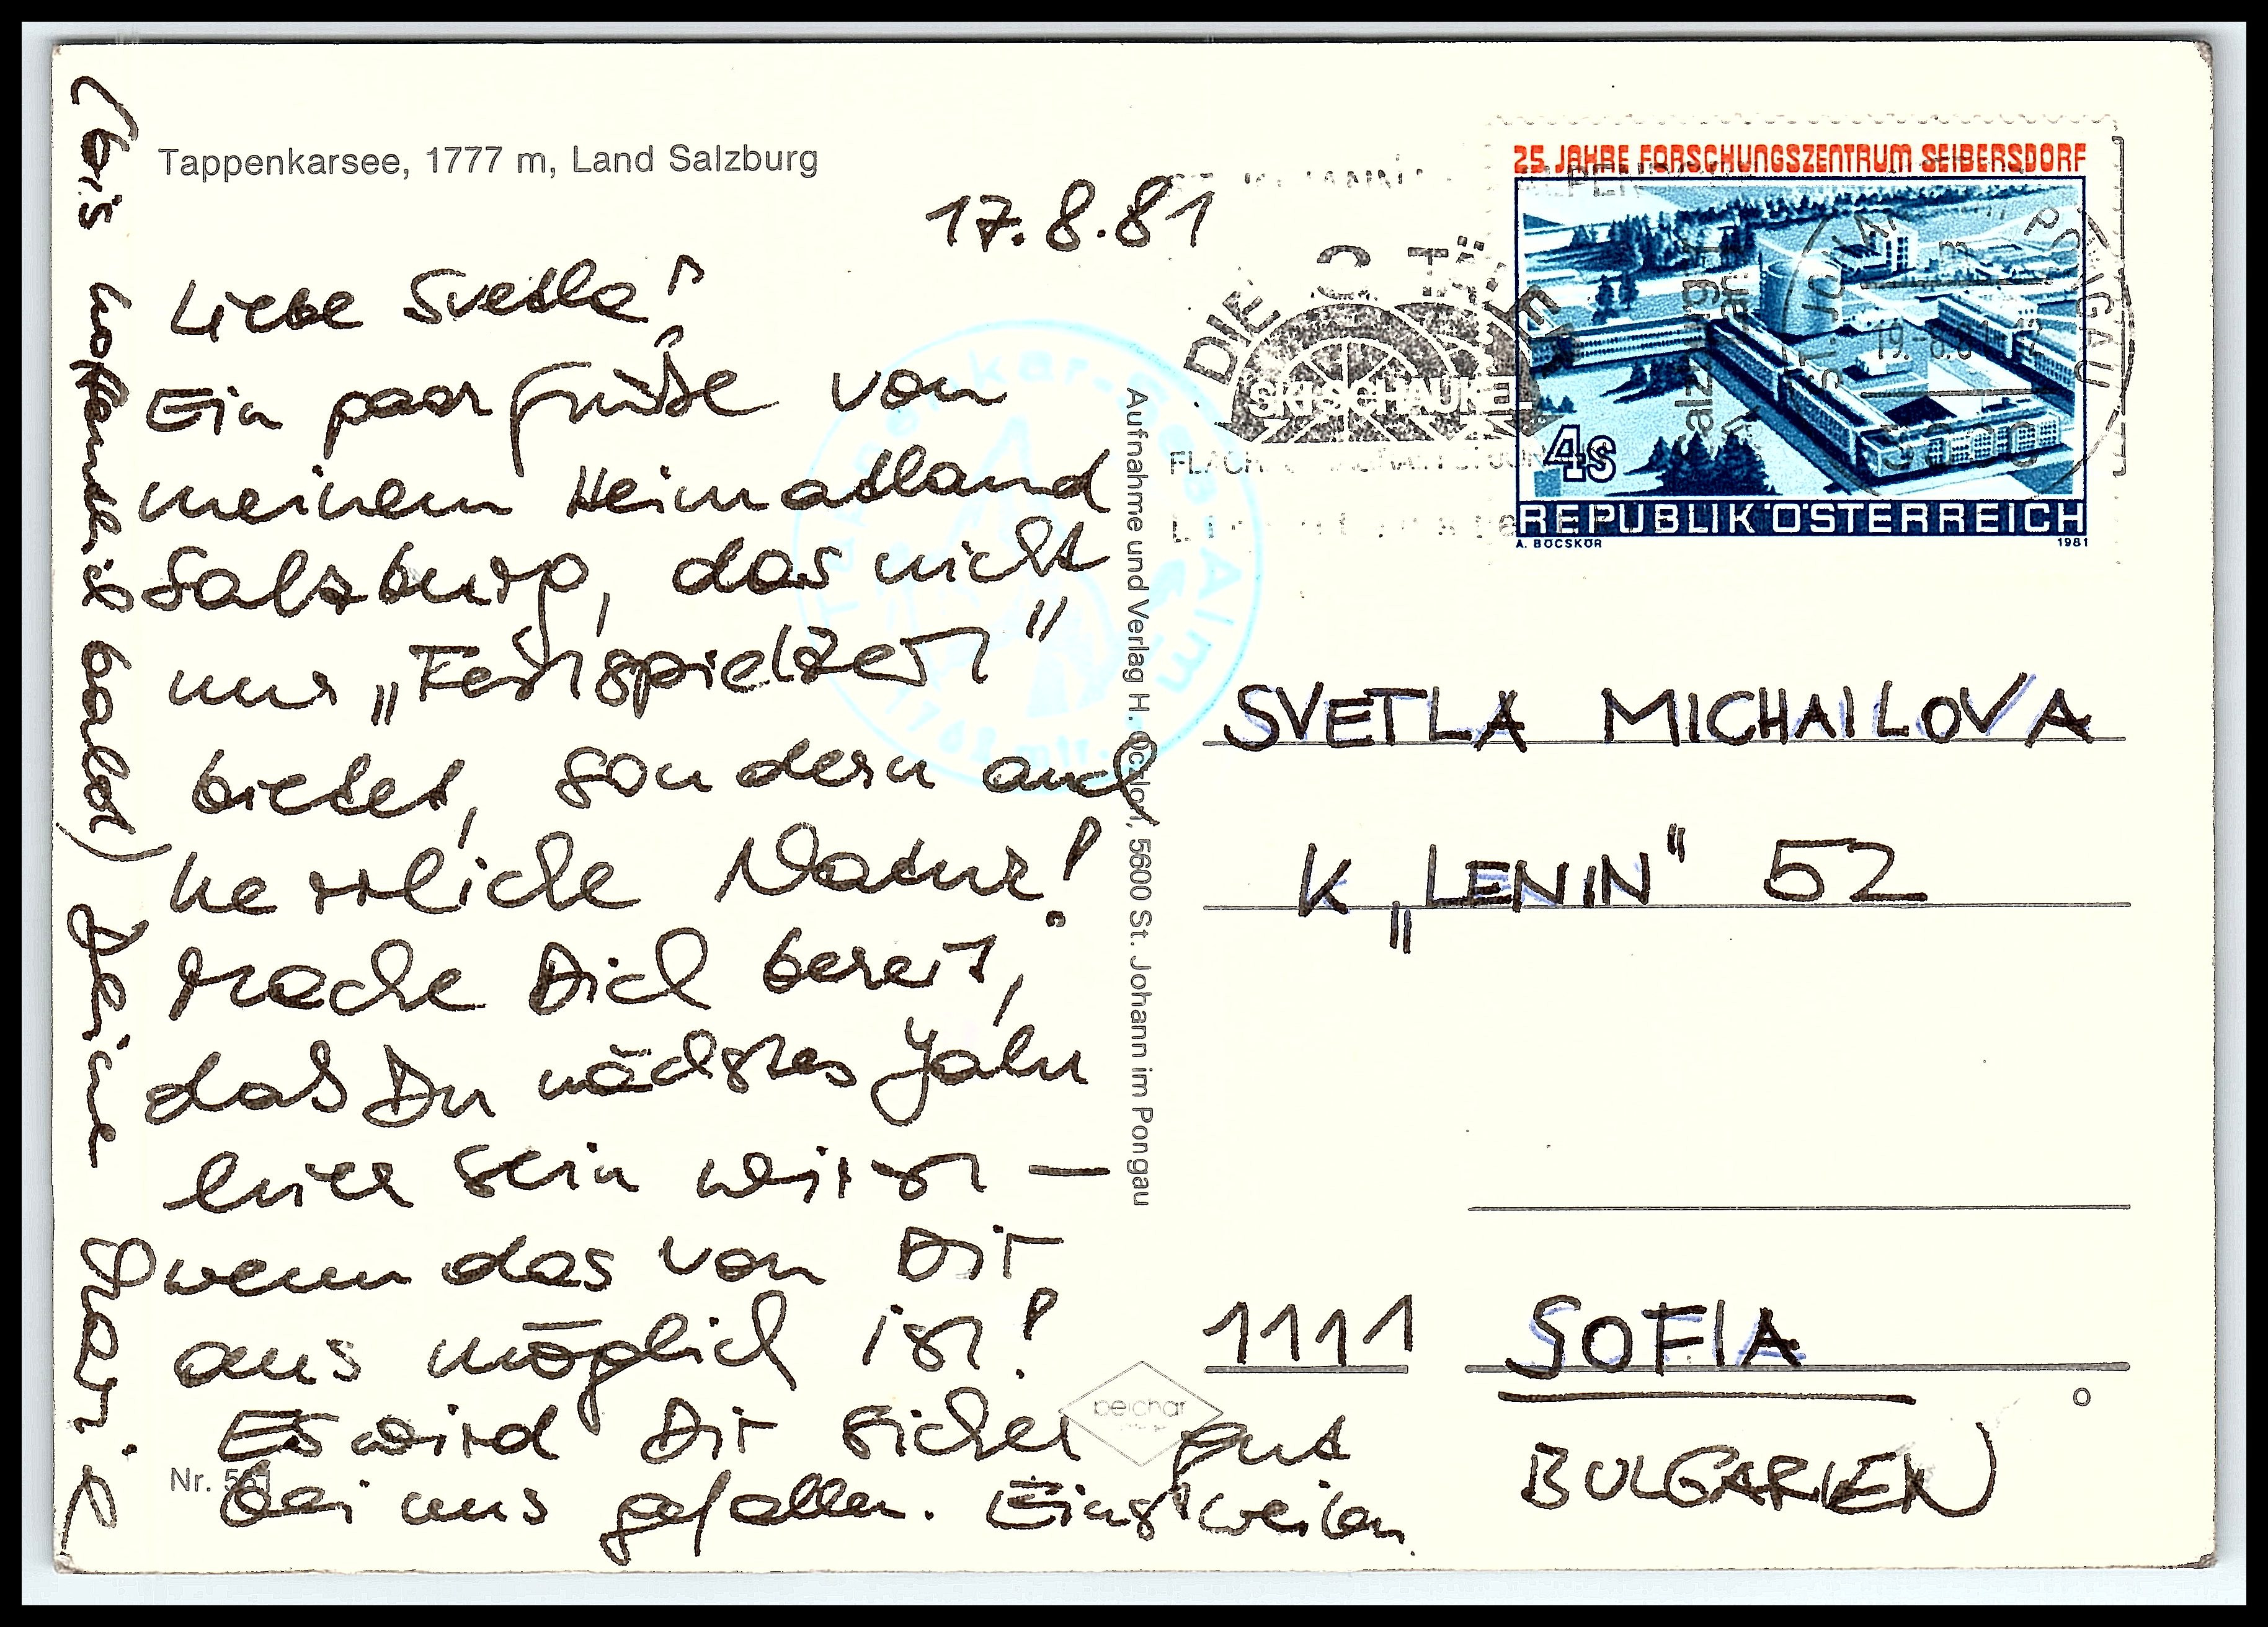 Tappenkarsee, 1777 m, Land Salzburg
17.8.81
Liebe Svetla!
Ein paar Grüße von
meinem Heimatland
Salzburg, das nicht
nur „Festspielzeit"
bietet, sondern auch
herrliche Natur!
Mache Dich bereit,
daß Du nächstes Jahr
hier sein wirst —
wenn das von Dir
aus möglich ist!
Es wird Dir sicher gut
bei uns gefallen. Einstweilen
(bis hoffentlich bald) Deine
Nr. 561
Aufnahme und Verlag H. Oczlon, 5600 St. Johann im Pongau
beichar
Tappenkar-See-Alm
1768 mtr.
DIE
SKISCHAUKEL
ST. JOHANN PONGAU
19.-8.81
5600
25 JAHRE FORSCHUNGSZENTRUM SEIBERSDORF
4S
REPUBLIK ÖSTERREICH
A. BÖCSKÖR 1981
SVETLA MICHAILOVA
K „LENIN" 52
1111 SOFIA
BULGARIEN